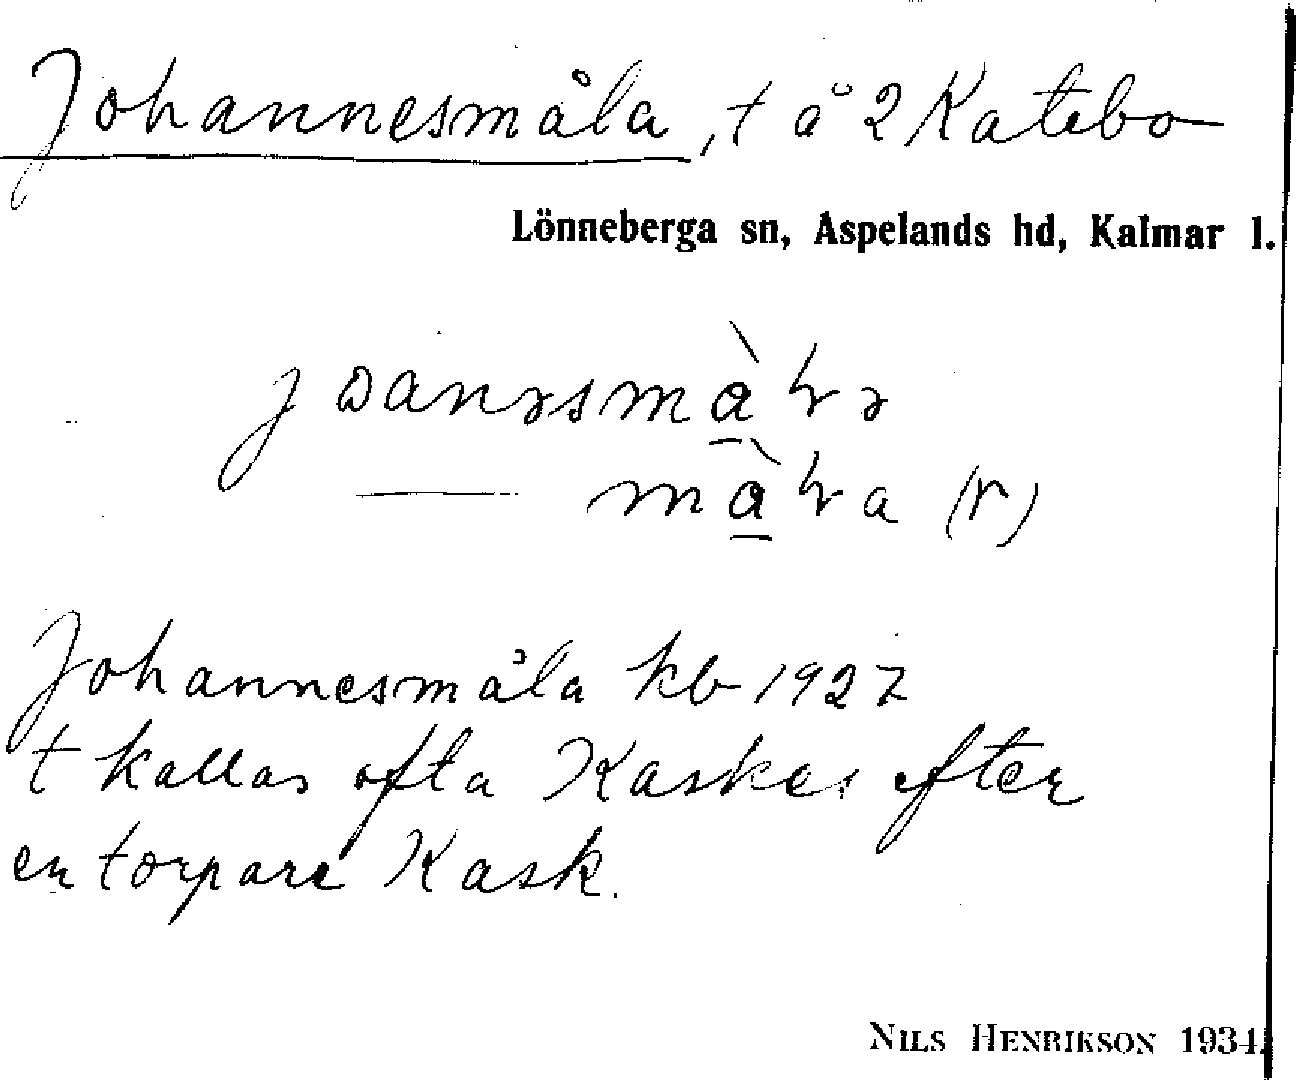 Johannesmåla, t å 2 Katebo
Lönneberga sn, Aspelands hd, Kalmar l.
(r)
Johannesmåla kb 1927
t kallas ofta Kaskes efter
en torpare Kask.
NILS HENRIKSON 1934.